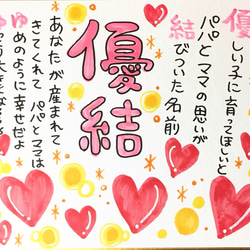 優
しい子に育ってほしいと
パパとママの思いが
結
びついた名前
優結
あなたが産まれて
きてくれて パパとママは
ゆ
めのように幸せだよ
ゆ